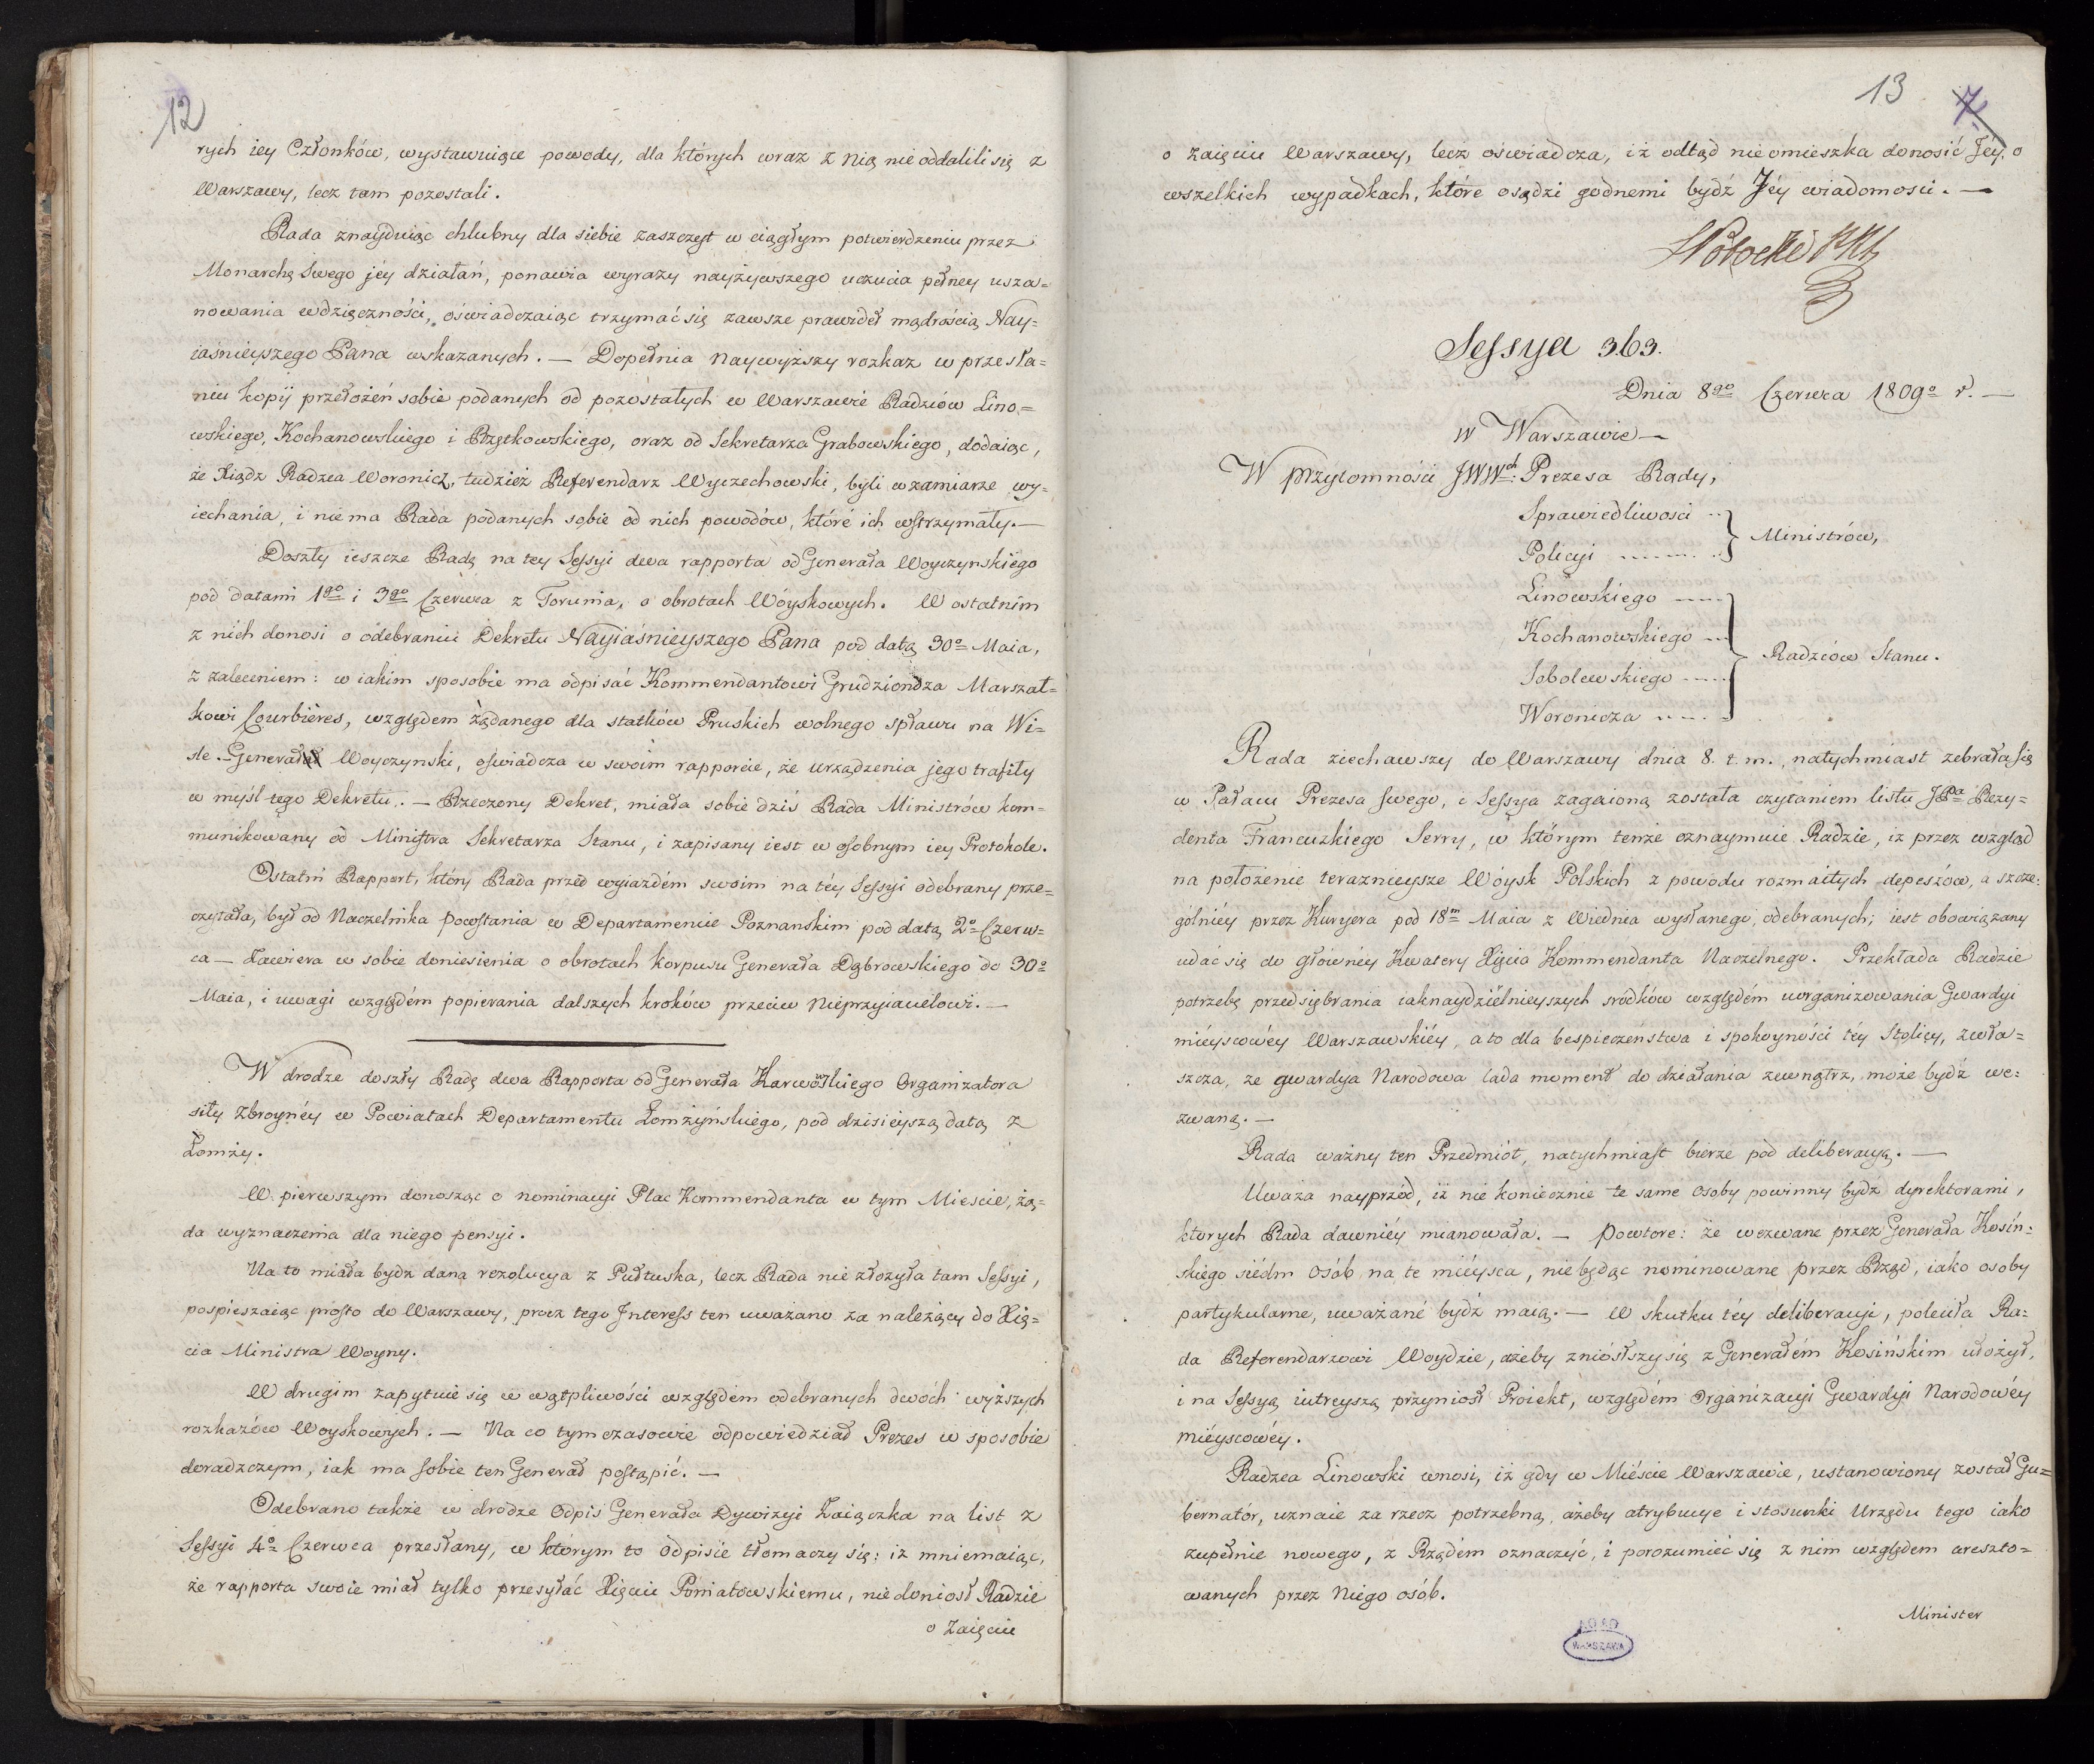 12
rych iey Członków, wystawuiące powody, dla których wraz z nią nie oddalili się z
Warszawy, lecz tam pozostali.
Rada znayduiąc chlubny dla siebie zaszczyt w ciągłym potwierdzeniu przez
Monarchę swego jéy działań, ponawia wyrazy nayżywszego uczucia pełney usza=
nowania wdzięczności, oświadczaiąc trzymać się zawsze prawideł mądrością Nay=
iaśnieyszego Pana wskazanych. — Dopełnia naywyższy rozkaz w przesła=
niu kopij przełożeń sobie podanych od pozostałych w Warszawie Radziów Lino=
wskiego, Kochanowskiego i Rzętkowskiego, oraz od Sekretarza Grabowskiego, dodaiąc,
że Xiądz Radzca Woronicz, tudzież Referendarz Wyczechowski, byli w zamiarze wy=
iechania, i niema Rada podanych sobie od nich powodów, które ich wstrzymały. —
Doszły ieszcze Radę na tey Sessyi dwa rapporta od Generała Woyczynskiego
pod datami 1go i 3go Czerwca z Torunia, o obrotach Wóyskowych. W ostatnim
z nich donosi o odebraniu Dekretu Nayiaśnieyszego Pana pod datą 30o Maia,
z zaleceniem: w iakim sposobie ma odpisać Kommendantowi Grudziondza Marszał=
kowi Courbières, względem żądanego dla statków Pruskich wolnego spławu na Wi=
śle. — Generał Woyczynski, oświadcza w swoim rapporcie, że urządzenia jego trafiły
w myśl tego Dekretu. — Rzeczony Dekret, miała sobie dziś Rada Ministrów kom=
munikowany od Ministra Sekretarza Stanu, i zapisany iest w osobnym iey Protokole.
Ostatni Rapport, który Rada przed wyiazdém swoim na téy Sessyi odebrany prze=
czytała, był od Naczelnika Powstania w Departamencie Poznanskim pod datą 2o Czerw=
ca — Zawiera w sobie doniesienia o obrotach korpusu Generała Dąbrowskiego do 30o
Maia, i uwagi względém popierania dalszych kroków przeciw Nieprzyiacielowi. —
W drodze doszły Radę dwa Rapporta od Generała Karwowskiego Organizatora
siły zbroynéy w Powiatach Departamentu Łomżyńskiego, pod dzisieyszą datą z
Łomży.
W pierwszym donosząc o nominacyi Plac Kommendanta w tym Mieście, żą=
da wyznaczenia dla niego pensyi.
Na to miała bydź daną rezolucya z Pułtuska, lecz Rada nie złożyła tam Sessyi,
pospieszaiąc prosto do Warszawy, procz tego Interess ten uważano za należący do Xię=
cia Ministra Woyny.
W drugim zapytuie się w wątpliwości względem odebranych dwóch wyższych
rozkazów Woyskowych. — Na co tymczasowie odpowiedział Prezes w sposobie
doradzczym, iak ma sobie ten Generał postąpić. —
Odebrano także w drodze Odpis Generała Dywizyi Zaiączka na list z
Sessyi 4o Czerwca przesłany, w którym to odpisie tłomaczy się: iż mniemaiąc,
że rapporta swoie miał tylko przesyłać Xięciu Poniatowskiemu, nie doniosł Radzie
o Zaięciu
13
7
o zaięciu Warszawy, lecz oświadcza, iż odtąd nieomieszka donosić Jéy, o
wszelkich wypadkach, które osądzi godnemi bydź Jéy wiadomosci. —
Sessya 363.
Dnia 8go Czerwca 1809o r. —
w Warszawie —
W przytomności JWWch: Prezesa Rady,
Sprawiedliwosci
Policyi
Ministrów,
Linowskiego
Kochanowskiego
Sobolewskiego
Woronicza
Radziów Stanu.
Rada ziechawszy do Warszawy dnia 8. t. m., natychmiast zebrała się
w Pałacu Prezesa swego, i Sessya zagaioną została czytaniem listu JPa Rezy=
denta Francuzkiego Serry, w którym tenże oznaymuie Radzie, iż przez wzgląd
na położenie teraznieysze Wóysk Polskich z powodu rozmaitych depeszów, a szcze=
gólniéy przez Kuryera pod 18m Maia z Wiednia wysłanego, odebranych; iest obowiązany
udać się do głównéy Kwatery Xięcia Kommendanta Naczelnego. Przekłada Radzie
potrzebę przedsiębrania iaknaydzielnieyszych srodków względém uorganizowania Gwardyi
mieyscowéy Warszawskiéy, a to dla bespieczeństwa i spokoyności téy Stolicy, zwła=
szcza, że gwardya Narodowa lada moment do działania zewnątrz, może bydź we=
zwaną. —
Rada ważny ten Przedmiót, natychmiast bierze pod deliberacyą. —
Uważa nayprzód, iż nie koniecznie te same osoby powinny bydź dyrektorami,
ktorych Rada dawniéy mianowała. — Powtore: że wezwane przez Generała Kosiń=
skiego siedm osób na te mieysca, nie będąc nominowane przez Rząd, iako osoby
partykularne, uważané bydź maią. — W skutku téy deliberacyi, poleciła Ra=
da Referendarzowi Woydzie, ażeby zniósłszy się z Generałém Kosińskim ułożył,
i na Sessyą iutreyszą przyniosł Proiekt, względém Organizacyi Gwardyi Narodowéy
miéyscowéy.
Radzca Linowski wnosi, iż gdy w Mieście Warszawie, ustanowiony został Gu=
bernatór, uznaie za rzecz potrzebną, ażeby atrybucye i stosunki Urzędu tego iako
zupełnie nowego, z Rządem oznaczyć, i porozumieć się z nim względem areszto=
wanych przez Niego osób.
Minister
AGAD
WARSZAWA